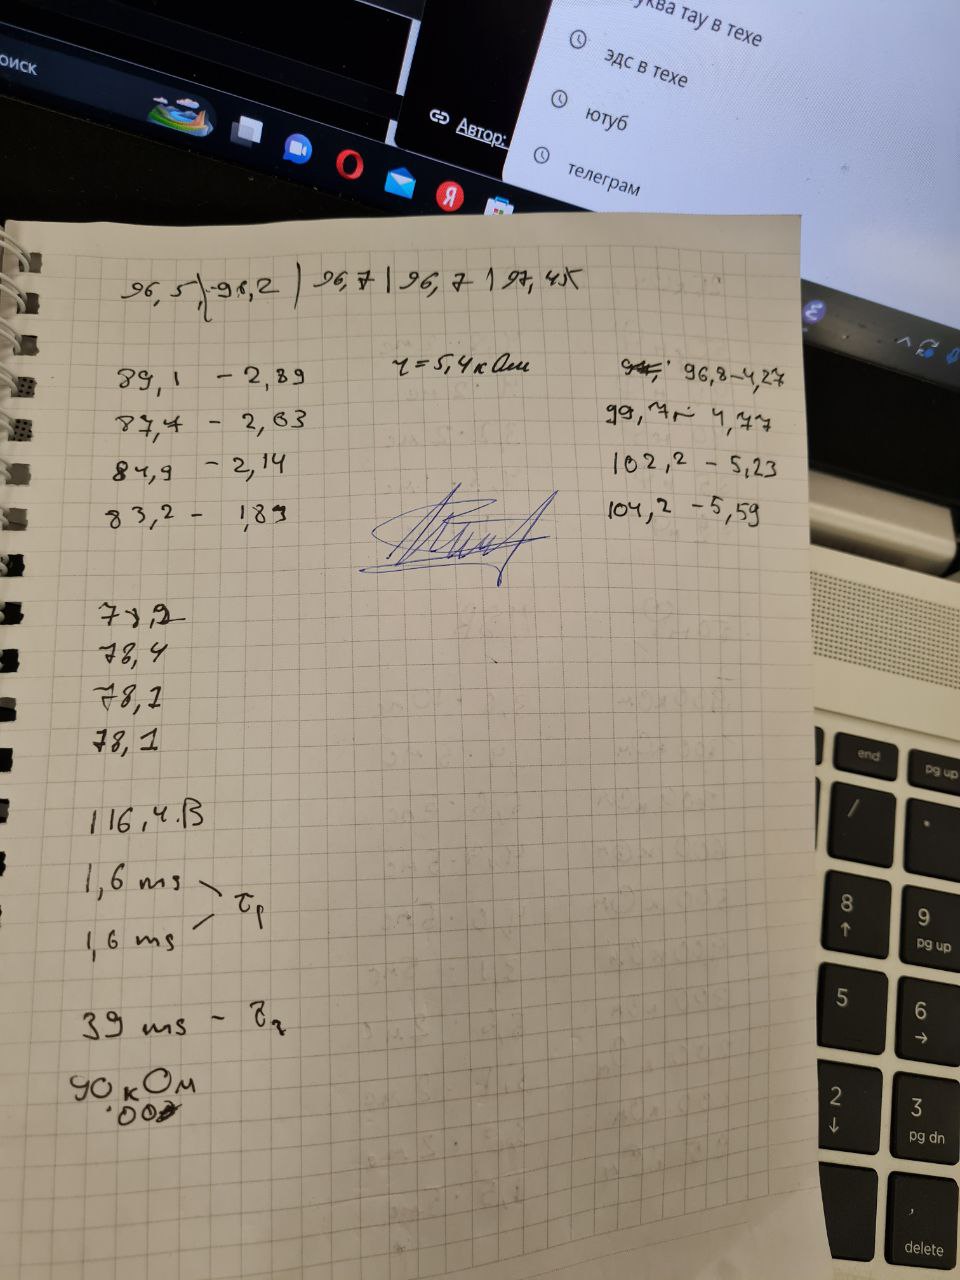 буква тау в техе
эдс в техе
ютуб
телеграм
оиск
Автор:
96,5 | 98,2 | 96,7 | 96,7 | 97,4
r = 5,4 кОм
89,1 - 2,89
87,7 - 2,63
84,9 - 2,14
83,2 - 1,89
96,8 - 4,27
99,7 - 4,77
102,2 - 5,23
104,2 - 5,59
78,2
78,4
78,1
78,1
116,4 В
1,6 ms
τр
1,6 ms
39 ms - τ
90 кОм
end
pg up
/
8
9
pg up
5
6
2
3
pg dn
,
delete